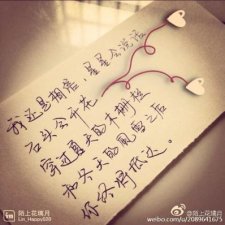 我还是相信，星星会说话
石头会开花
穿过夏天的木栅栏
和冬天的风雪之后
你终会抵达。
陌上花璃月
Lin_Happy020
@陌上花璃月
weibo.com/u/2089641675